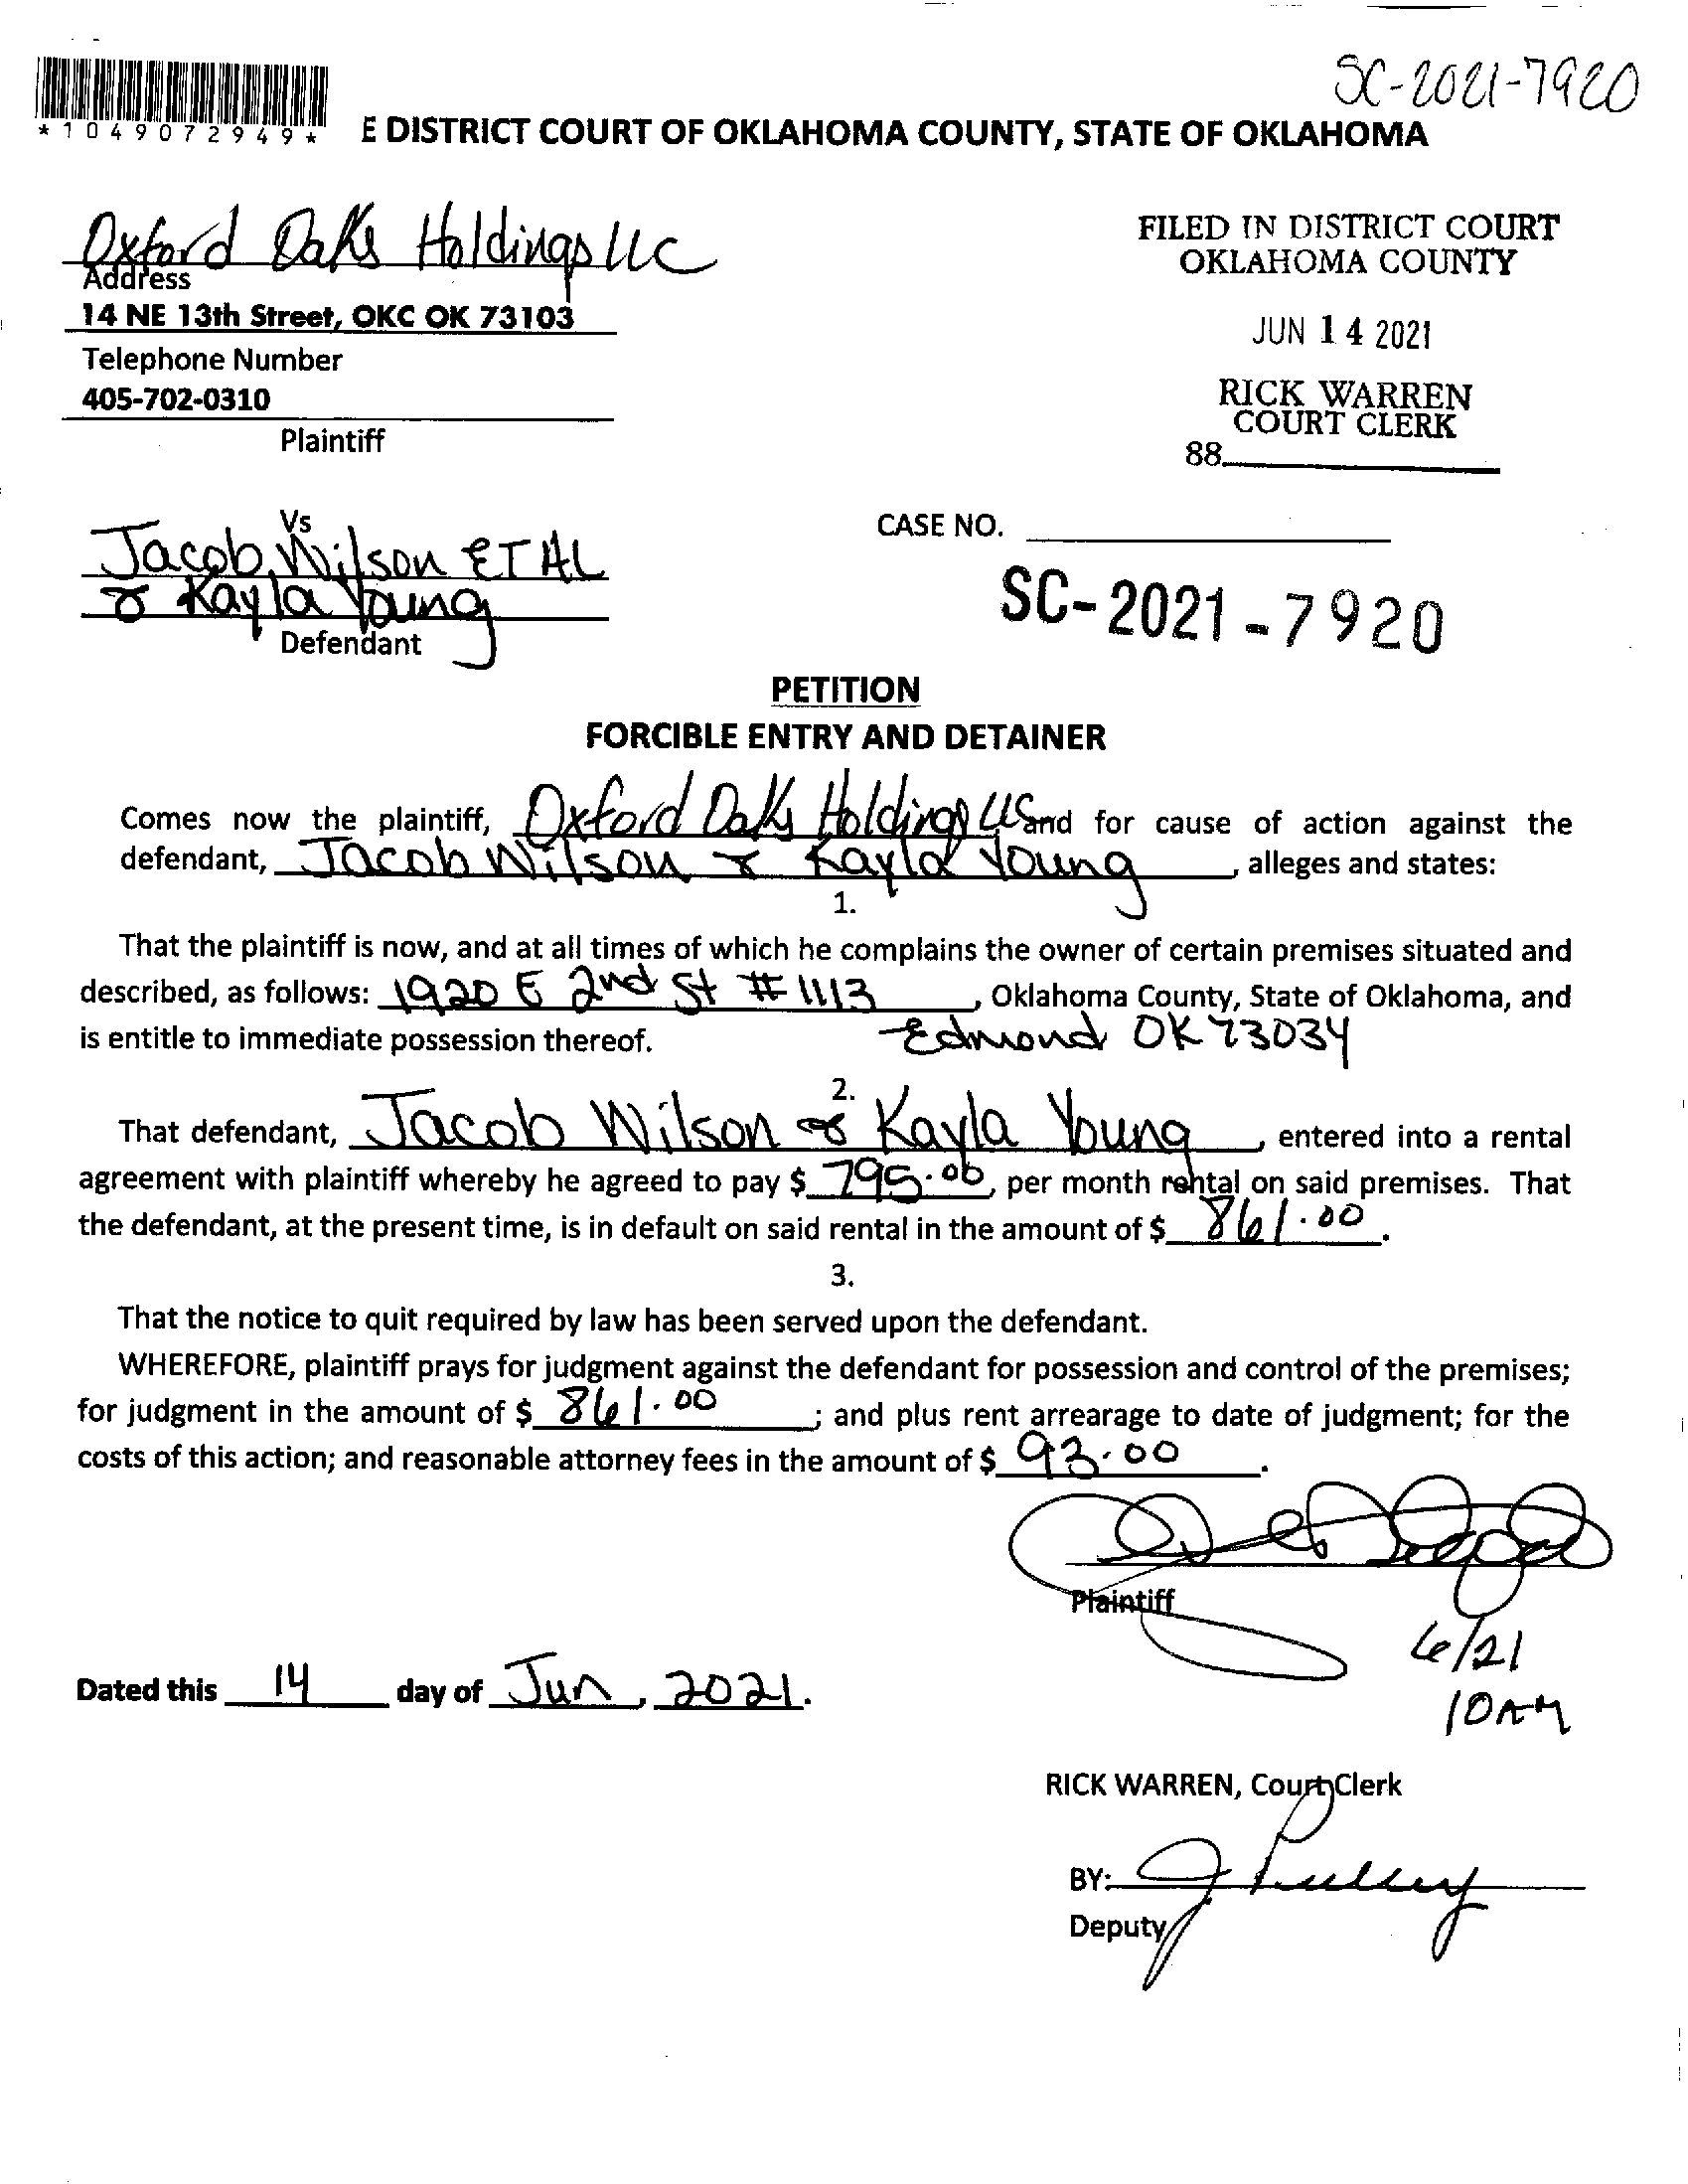 SC-2021-7920
*1049072949*
E DISTRICT COURT OF OKLAHOMA COUNTY, STATE OF OKLAHOMA
Oxford Oaks Holdings LLC
Address
14 NE 13th Street, OKC OK 73103
Telephone Number
405-702-0310
Plaintiff
FILED IN DISTRICT COURT
OKLAHOMA COUNTY
JUN 14 2021
RICK WARREN
COURT CLERK
88
Vs
Jacob Wilson ET AL
& Kayla Young
Defendant
CASE NO.
SC-2021-7920
PETITION
FORCIBLE ENTRY AND DETAINER
Comes now the plaintiff, Oxford Oaks Holdings LLC and for cause of action against the
defendant, Jacob Wilson & Kayla Young, alleges and states:
1.
That the plaintiff is now, and at all times of which he complains the owner of certain premises situated and
described, as follows: 1920 E 2nd St #1113, Oklahoma County, State of Oklahoma, and
is entitle to immediate possession thereof. Edmond OK 73034
2.
That defendant, Jacob Wilson & Kayla Young, entered into a rental
agreement with plaintiff whereby he agreed to pay $ 795.00, per month rental on said premises. That
the defendant, at the present time, is in default on said rental in the amount of $ 861.00.
3.
That the notice to quit required by law has been served upon the defendant.
WHEREFORE, plaintiff prays for judgment against the defendant for possession and control of the premises;
for judgment in the amount of $ 861.00; and plus rent arrearage to date of judgment; for the
costs of this action; and reasonable attorney fees in the amount of $ 93.00.
Plaintiff
6/21
10AM
Dated this 14 day of Jun, 2021.
RICK WARREN, Court Clerk
BY:
Deputy